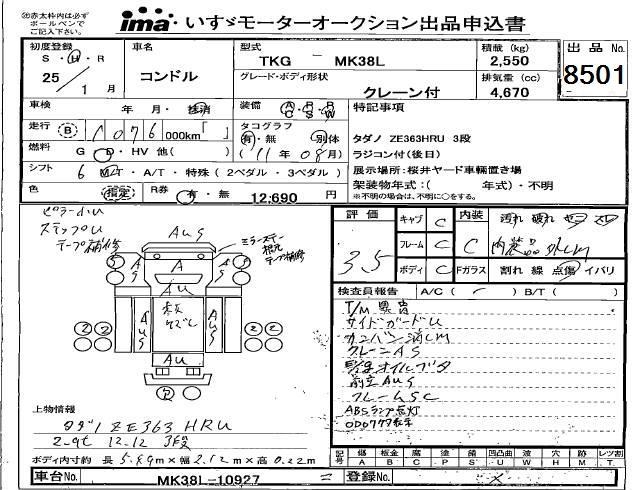 ㊟赤太枠内は必ず
ボールペンで
ご記入下さい。
ima いすゞモーターオークション出品申込書
初度登録
S・H・R
25／1月
車名
コンドル
型式
TKG － MK38L
グレード・ボディ形状
クレーン付
積載 (kg)
2,550
排気量 (cc)
4,670
出品 No.
8501
車検
年・月・抹消
装備
A C・P S・P W
走行
(B)
1076 000km「 」
タコグラフ
有・無 別体
燃料
G・D・HV 他( )
(11年08月)
シフト
6 MT・A/T・特殊(2ペダル・3ペダル)
色
(指定)
R券
有・無 12,690 円
特記事項
タダノ ZE363HRU 3段
ラジコン付(後日)
展示場所:桜井ヤード車輌置き場
架装物年式:( 年式)・不明
※不明の場合は、不明に○をする。
ピラー小U
ステップU
テープ補修
AUS
ミラーステー
根元
テープ補修
A
A
AU
AUS
AUS
AU
評価
3.5
キャブ C
フレーム C
ボディ C
内装 C
汚れ 破れ コゲ スレ
内装品外しM
Fガラス
割れ 線 点傷 イバリ
検査員報告 A/C( ) B/T( )
T/M異音
サイドガードU
カンバン消しM
クレーンAS
前立AUS
フレームSC
ABSランプ点灯
上物情報
タダノ ZE363HRU
2.9t 12.12 3段
ボディ内寸約 長5.89m×幅2.12m×高0.22m
記号 傷 A 板金 B 腐 C 塗 P 錆 S 凹凸曲 U 波 W 穴 H 跡 M レツ割 T
車台No. MK38L-10927
登録No. ×